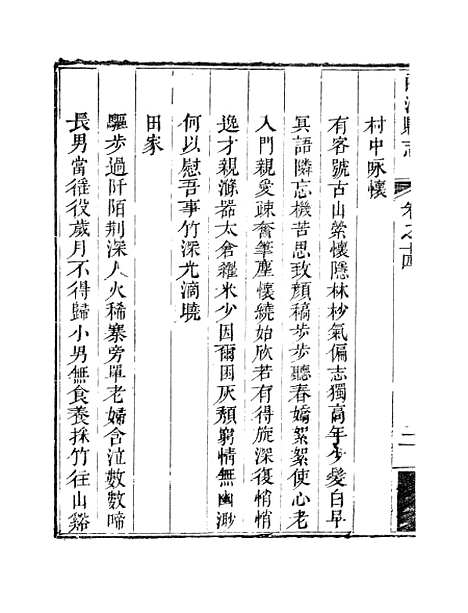 縣志
卷之十四
二
村中咏懷
有客號古山縈懷隱林杪氣偏志獨高年少髮白早
冥語隣忘機苦思致顏槁步步聽春嬌絮絮使心老
入門親愛疎奮筆塵懷繞始欣若有得旋深復悄悄
逸才親滌器太倉糴米少因爾困灰頹窮情無幽渺
何以慰吾事竹深光滴曉
田家
驅步過阡陌荆深人火稀寨旁單老婦含泣數數啼
長男當徭役歲月不得歸小男無食養採竹往山谿